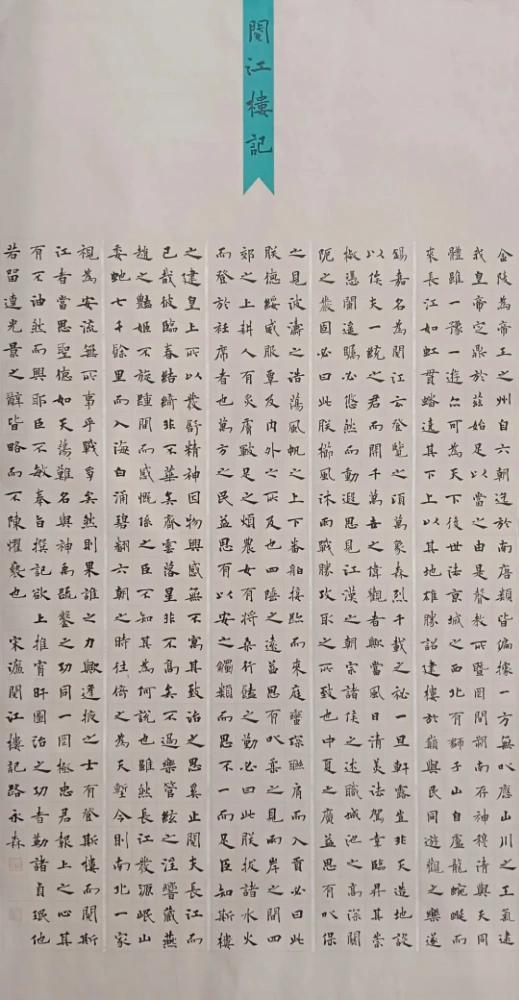 閱江樓記
金陵為帝王之州自六朝迄於南唐類皆偏據一方無以應山川之王氣逮
我皇帝定鼎於茲始足以當之由是聲教所暨罔間朔南存神穆清與天同
體雖一豫一遊亦可為天下後世法京城之西北有獅子山自盧龍蜿蜒而
來長江如虹貫蟠遶其下上以其地雄勝詔建樓於巔與民同遊觀之樂遂
錫嘉名為閱江云登覽之頃萬象森烈千載之秘一旦軒露豈非天造地設
以俟夫一統之君而開千萬世之偉觀者歟當風日清美法駕幸臨昇其崇
椒憑闌遙矚必悠然而動遐思見江漢之朝宗諸侯之述職城池之高深關
阨之嚴固必曰此朕櫛風沐雨而戰勝攻取之所致也中夏之廣益思有以保
之見波濤之浩蕩風帆之上下番舶接跡而來庭蠻琛聯肩而入貢必曰此
朕德綏威服覃及內外之所及也四陲之遠益思有以柔之見兩岸之間四
郊之上耕人有炙膚皸足之煩農女有將桑行饁之勤必曰此朕拔諸水火
而登於衽席者也萬方之民益思有以安之觸類而思不一而足臣知斯樓
之建皇上所以發舒精神因物興感無不寓其致治之思奚止閱夫長江而
已哉彼臨春結綺非不華矣齊雲落星非不高矣不過樂管絃之淫響藏燕
趙之豔姬不旋踵間而感慨係之臣不知其為何說也雖然長江發源岷山
委蛇七千餘里而入海白湧碧翻六朝之時往倚之為天塹今則南北一家
視為安流無所事乎戰爭矣然則果誰之力歟逢掖之士有登斯樓而閱斯
江者當思聖德如天蕩難名與神禹疏鑿之功同一罔極忠君報上之心其
有不油然而興耶臣不敏奉旨撰記欲上推宵旰圖治之功者勒諸貞珉他
若留連光景之辭皆略而不陳懼褻也 宋濂閱江樓記路永森